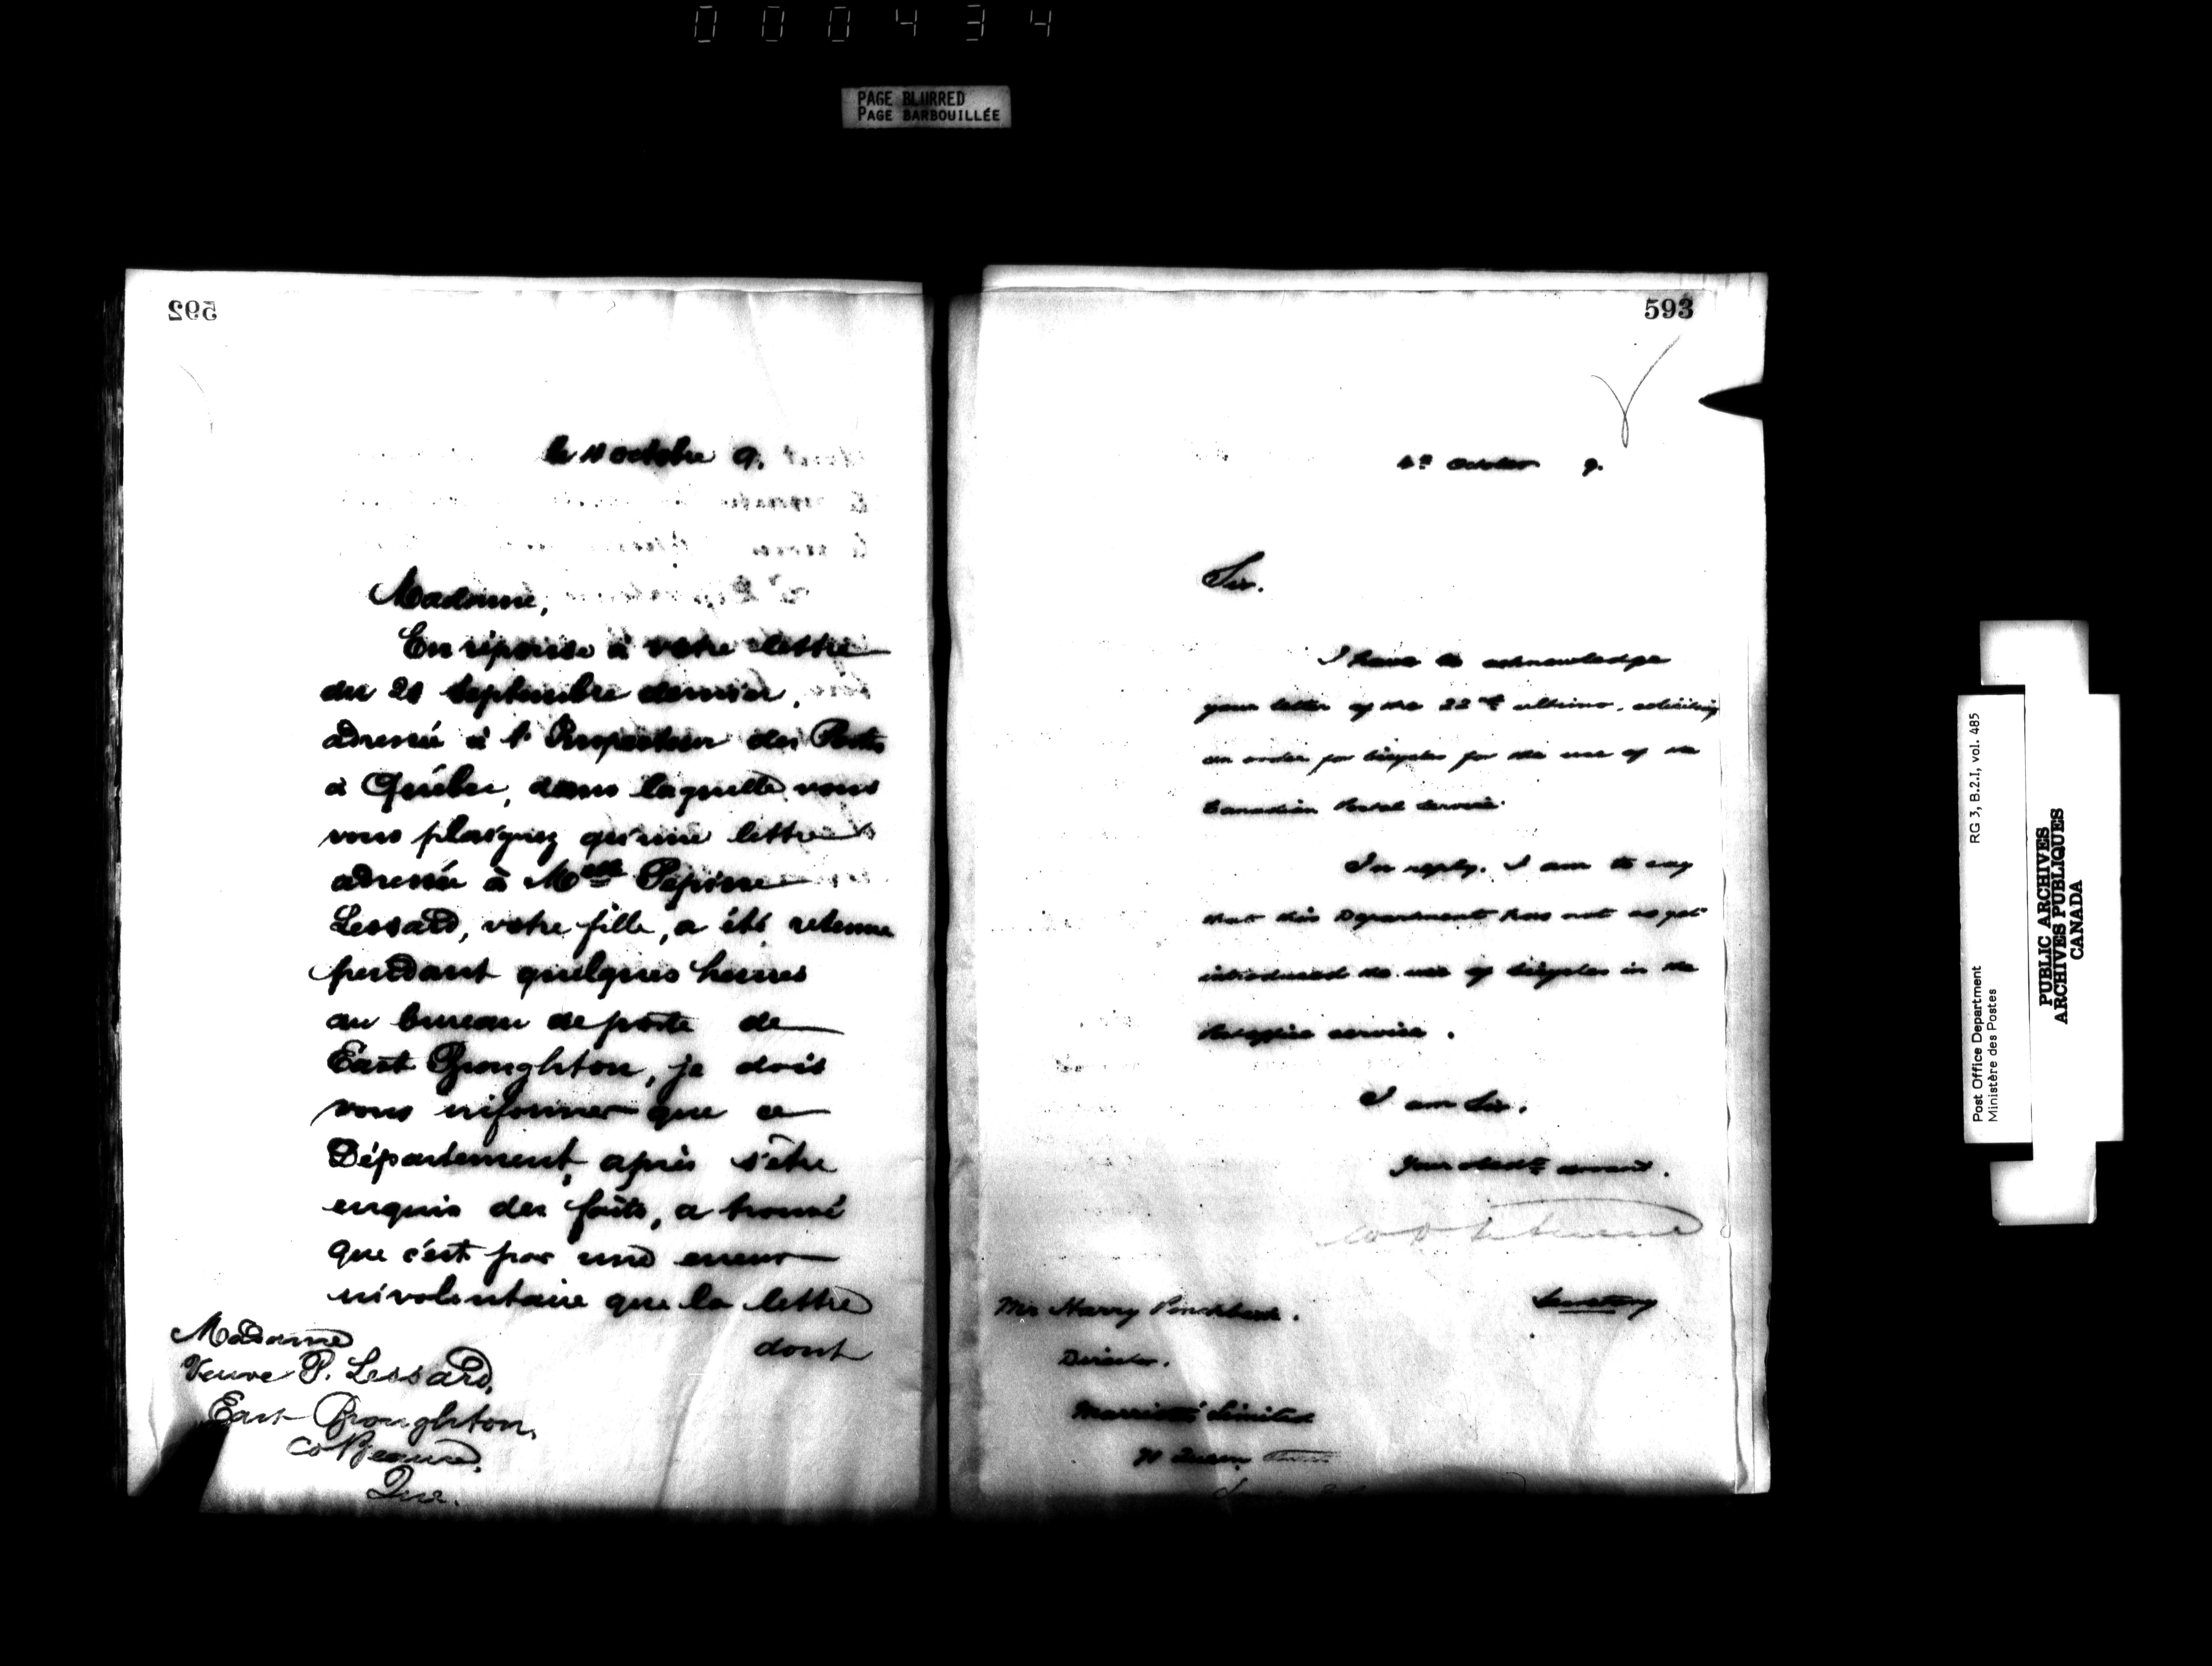 000434
PAGE BLURRED
PAGE BARBOUILLÉE
592
le octobre 9.
Madame,
En réponse à votre lettre
du 21 septembre dernier,
adressée à l'Inspecteur des Postes
à Québec, dans laquelle vous
vous plaignez qu'une lettre
adressée à Melle
Lessard, votre fille, a été retenue
pendant quelques heures
au bureau de poste de
East Broughton, je dois
vous informer que ce
Département, après s'être
enquis des faits, a trouvé
que c'est par une erreur
involontaire que la lettre
dont
Madame
Veuve P. Lessard,
East Broughton,
Co Beauce,
Que.
593
4th October 9.
Sir.
I have to acknowledge
your letter of the 22nd ultimo, soliciting
an order for bicycles for the use of the
Canadian Postal Service.
In reply, I am to say
that this Department has not as yet
introduced the use of bicycles in the
Postoffice service.
I am Sir,
Your obedt servant.
Secretary
Mr Harry
Director.
Limited
Queen
Post Office Department RG 3, B.2.I, vol. 485
Ministère des Postes
PUBLIC ARCHIVES
ARCHIVES PUBLIQUES
CANADA